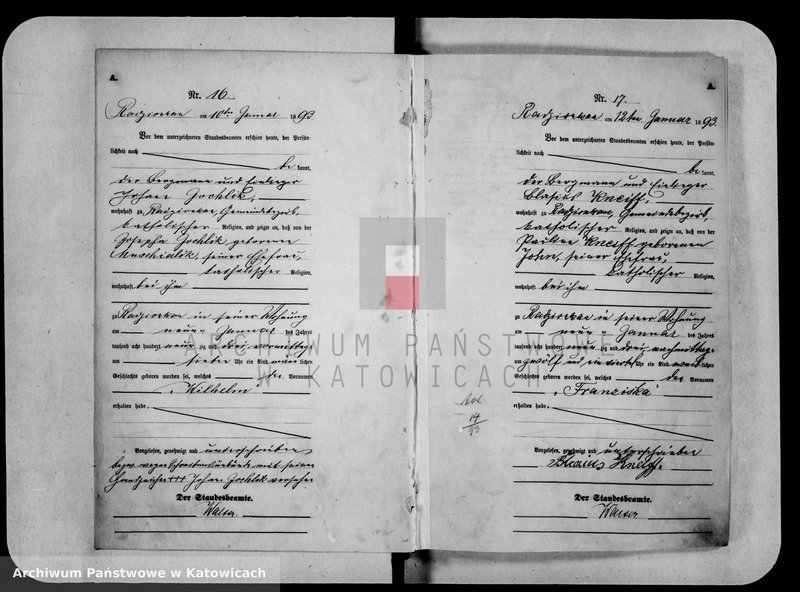 A.
Nr. 16
Radzionkau am 10ten Januar 1893
Vor dem unterzeichneten Standesbeamten erschien heute, der Persön-
lichkeit nach
be kannt,
der Bergmann und Einlieger
Johann Jochlik,
wohnhaft zu Radzionkau, Gemeindebezirk,
katholischer Religion, und zeigte an, daß von der
Josepha Jochlik geborenen
seiner Ehefrau,
katholischer Religion,
wohnhaft bei ihm
zu Radzionkau in seiner Wohnung
am neun ten Januar des Jahres
tausend acht hundert neun zig und drei vormittags
um sieben Uhr ein Kind männ lichen
Geschlechts geboren worden sei, welches den Vornamen
„Wilhelm“
erhalten habe.
Vorgelesen, genehmigt und unterschrieben
bezw. wegen Schreibensunkunde mit seinem
Handzeichen +++ Johann Jochlik versehen
Der Standesbeamte.
A.
Nr. 17.
Radzionkau am 12ten Januar 1893.
Vor dem unterzeichneten Standesbeamten erschien heute, der Persön-
lichkeit nach
be kannt,
der Bergmann und Einlieger
Blasius Kneiff,
wohnhaft zu Radzionkau, Gemeindebezirk,
katholischer Religion, und zeigte an, daß von der
Kneiff geborenen
seiner Ehefrau,
katholischer Religion,
wohnhaft bei ihm
zu Radzionkau in seiner Wohnung
am neun ten Januar des Jahres
tausend acht hundert neun zig und drei nachmittags
um zwölf und ein viertel Uhr ein Kind weib lichen
Geschlechts geboren worden sei, welches den Vornamen
„Franziska“
erhalten habe.
Vorgelesen, genehmigt und unterschrieben
Blasius Kneiff.
Der Standesbeamte.
ARCHIWUM PAŃSTWOWE
W KATOWICACH
Archiwum Państwowe w Katowicach